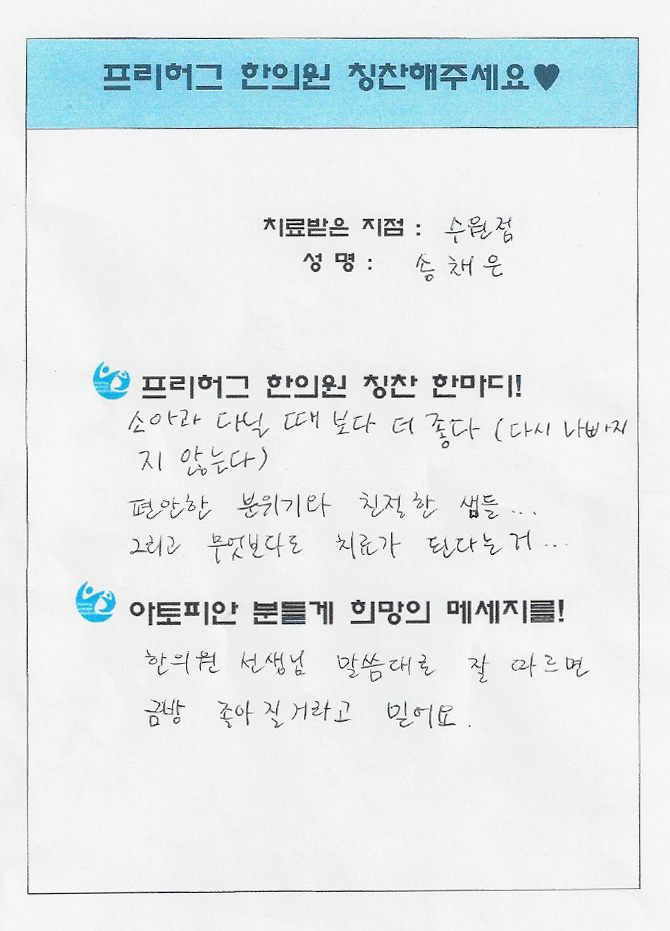 프리허그 한의원 칭찬해주세요♥
치료받은 지점 : 수원점
성 명 : 송 채 은
프리허그 한의원 칭찬 한마디!
소아과 다닐 때 보다 더 좋다 (다시 나빠지
지 않는다)
편안한 분위기와 친절한 샘들...
그리고 무엇보다도 치료가 된다는거...
아토피안 분들게 희망의 메세지를!
한의원 선생님 말씀대로 잘 따르면
금방 좋아질거라고 믿어요.